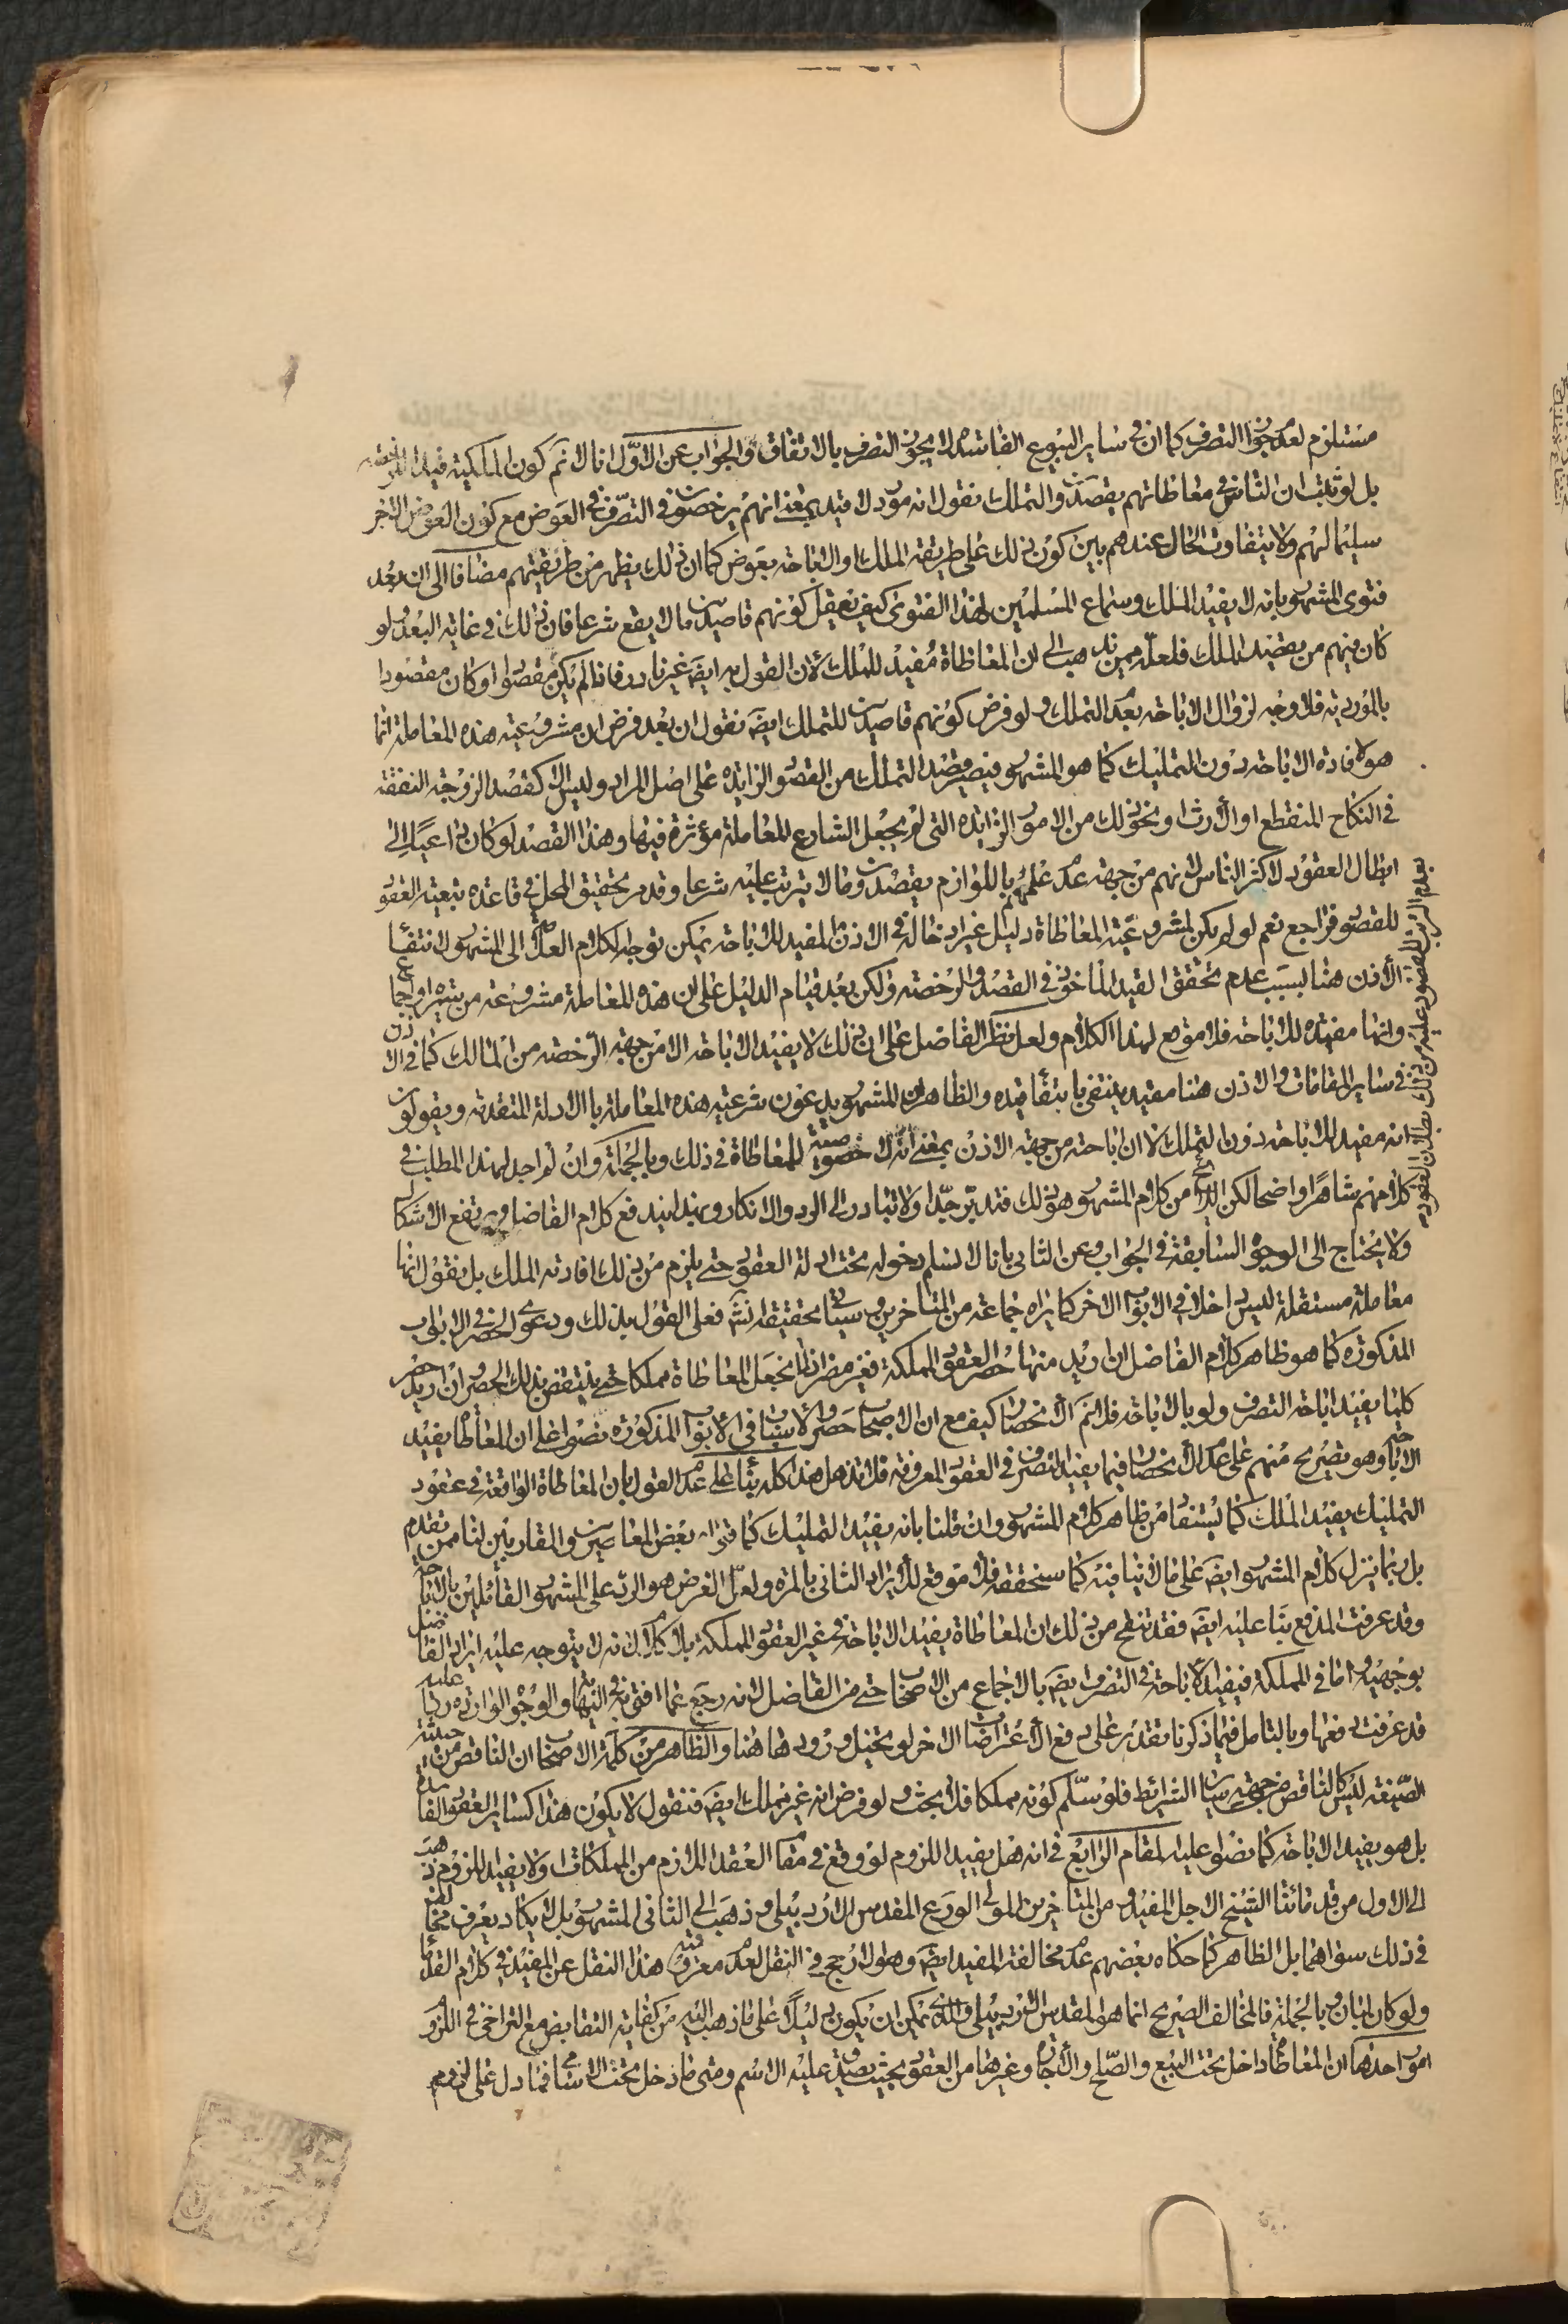 مستلزم لعدم جواز التصرف كما ان في ساير البيوع الفاسدة لا يجوز التصرف بالاتفاق والجواب عن الاول انا لا نم كون الملكية قيدا للرخصة
بل لو ثبت ان الناس في معاطاتهم يقصدون التملك نقول انه مورد لا قيد بمعنى انهم يرخصون في التصرف في العوض مع كون العوض الآخر
سليما لهم ولا يتفاوت الحال عندهم بين كون ذلك على طريقة الملك او الاباحة بعوض كما ان ذلك يظهر من طريقتهم مضافا الى ان بعد
فتوى المشهور بانه لا يفيد الملك وسماع المسلمين لهذا الفتوى كيف نعقل كونهم قاصدين ما لا يقع شرعا فان ذلك في غاية البعد ولو
كان منهم من يقصد الملك فلعله ممن يذهب الى ان المعاطاة مفيد للملك لان القول به ايضا غير نادر فاذا لم يكن مقصودا او كان مقصودا
بالموردية فلا وجه لزوال الاباحة بعدم التملك ولو فرض كونهم قاصدين للتملك ايضا نقول ان بعد فرض ان مشروعية هذه المعاملة انما
هو لافادة الاباحة دون التمليك كما هو المشهور فيصير قصد التملك من القصود الزايدة على اصل المراد وليس الا كقصد الزوجة النفقة
في النكاح المنقطع او الارث او نحو ذلك من الامور الزايدة التي لم يجعل الشارع المعاملة مؤثرة فيها وهذا القصد لو كان داعيا الى
ابطال العقود لاكثر الناس لانهم من جهة عدم علمهم باللوازم يقصدون ما لا يترتب عليه شرعا وقد مر تحقيق المحل في قاعدة تبعية العقود
للقصود فراجع نعم لو لم يكن لمشروعية المعاطاة دليل غير ادخاله في الاذن المفيد للاباحة يمكن توجه لكلام العلامة الى المشهور لانتفاء
الاذن هنا بسبب عدم تحقق القيد المأخوذ في القصد والرخصة ولكن بعد قيام الدليل على ان هذه المعاملة مشروعة من سيرة او اجماع
وانها مفيدة للاباحة فلا موقع لهذا الكلام ولعل نظر الفاضل على ان ذلك لا يفيد الاباحة الا من جهة الرخصة من المالك كما في الاذن
في ساير المقامات والاذن هنا مقيد ينتفي بانتفاء قيده والظاهر ان المشهور يدعون شرعية هذه المعاملة بالادلة المتقدمة ويقولون
انه مفيد للاباحة دون التملك لا ان اباحته من جهة الاذن بمعنى انه لا خصوصية للمعاطاة في ذلك وبالجملة وان لم اجد لهذا المطلب في
كلامهم شاهدا واضحا لكن من كلام المشهور هو ذلك فتدبر جدا ولا تبادر الى الرد والانكار وبهذا يندفع كلام الفاضل ويرتفع الاشكال
ولا يحتاج الى الوجوه السابقة في الجواب وعن الثاني بانا لا نسلم دخوله تحت ادلة العقود حتى يلزم من ذلك افادته الملك بل نقول انها
معاملة مستقلة ليس داخلا في الابواب الاخر كما يراه جماعة من المتأخرين وسيأتي تحقيقه انش فعلى القول بذلك ودعوى الحصر في الابواب
المذكورة كما هو ظاهر كلام الفاضل ان اريد منها حصر العقود المملكة فغير مضر اذ لم نجعل المعاطاة مملكا حتى ينتقض بذلك الحصر وان اريد حصر
كلما يفيد اباحة التصرف ولو بالاباحة فلا نم الانحصار كيف مع ان الاصحاب حصروا الاسباب في الابواب المذكورة نصوا على ان المعاطاة يفيد
الاباحة وهو تصريح منهم على عدم الانحصار فيما يفيد التصرف في العقود المعروفة فلا تذهل هذا كله بناء على عدم القول بان المعاطاة الواقعة في عقود
التمليك يفيد الملك كما يستفاد من ظاهر كلام المشهور وان قلنا بانه يفيد التمليك كما قواه بعض المعاصرين والمقاربين لنا ممن تقدم
بل ربما ينزل كلام المشهور ايضا على ما لا ينافيه كما سنحققه فلا موقع للايراد الثاني بالمرة ولعل الغرض هو الرد على المشهور القائلين بالاباحة
وقد عرفت المدفع بناء عليه ايضا فقد تنقح من ذلك ان المعاطاة يفيد الاباحة في غير العقود المملكة بلا كلام لانه لا يتوجه عليه ايراد الفاضل
بوجهيه واما في المملكة فيفيد لاباحة في التصرف ايضا بالاجماع من الاصحاب حتى من الفاضل لانه رجع عما افتى به في النهاية والوجوه الواردة عليه
قد عرفت دفعها وبالتامل فيما ذكرنا تقدر على دفع الاعتراضات الاخر لو تخيل ورودها هنا والظاهر من كلمة الاصحاب ان الناقص من حيثية
الصيغة ليس كالناقص من جهة ساير الشرائط فلو سلم كونه مملكا فلا بحث ولو فرض انه غير مملك ايضا فنقول لا يكون هذا كساير العقود الفاسدة
بل هو يفيد الاباحة كما نصوا عليه المقام الرابع في انه هل يفيد اللزوم لو وقع في مقام العقد اللازم من المملكات او لا يفيد اللزوم ذهب
الى الاول من قدمائنا الشيخ الاجل المفيد ومن المتاخرين المولى الورع المقدس الاردبيلي وذهب الى الثاني المشهور بل لا يكاد يعرف مخالف لهم
في ذلك سواهما بل الظاهر كما حكاه بعضهم عدم مخالفة المفيد ايضا وهو الارجح في النقل لعدم معروفية هذا النقل عن المفيد في كلام القدماء
ولو كان لبان وبالجملة فالمخالف الصريح انما هو المقدس الاردبيلي والذي يمكن ان يكون دليلا على ما ذهب اليه من كفاية التقابض مع التراضي في اللزوم
امور احدها ان المعاطاة داخل تحت البيع والصلح والاجارة وغيرها من العقود بحيث يصدق عليه الاسم ومتى ما دخل تحت الاسامي فما دل على لزوم